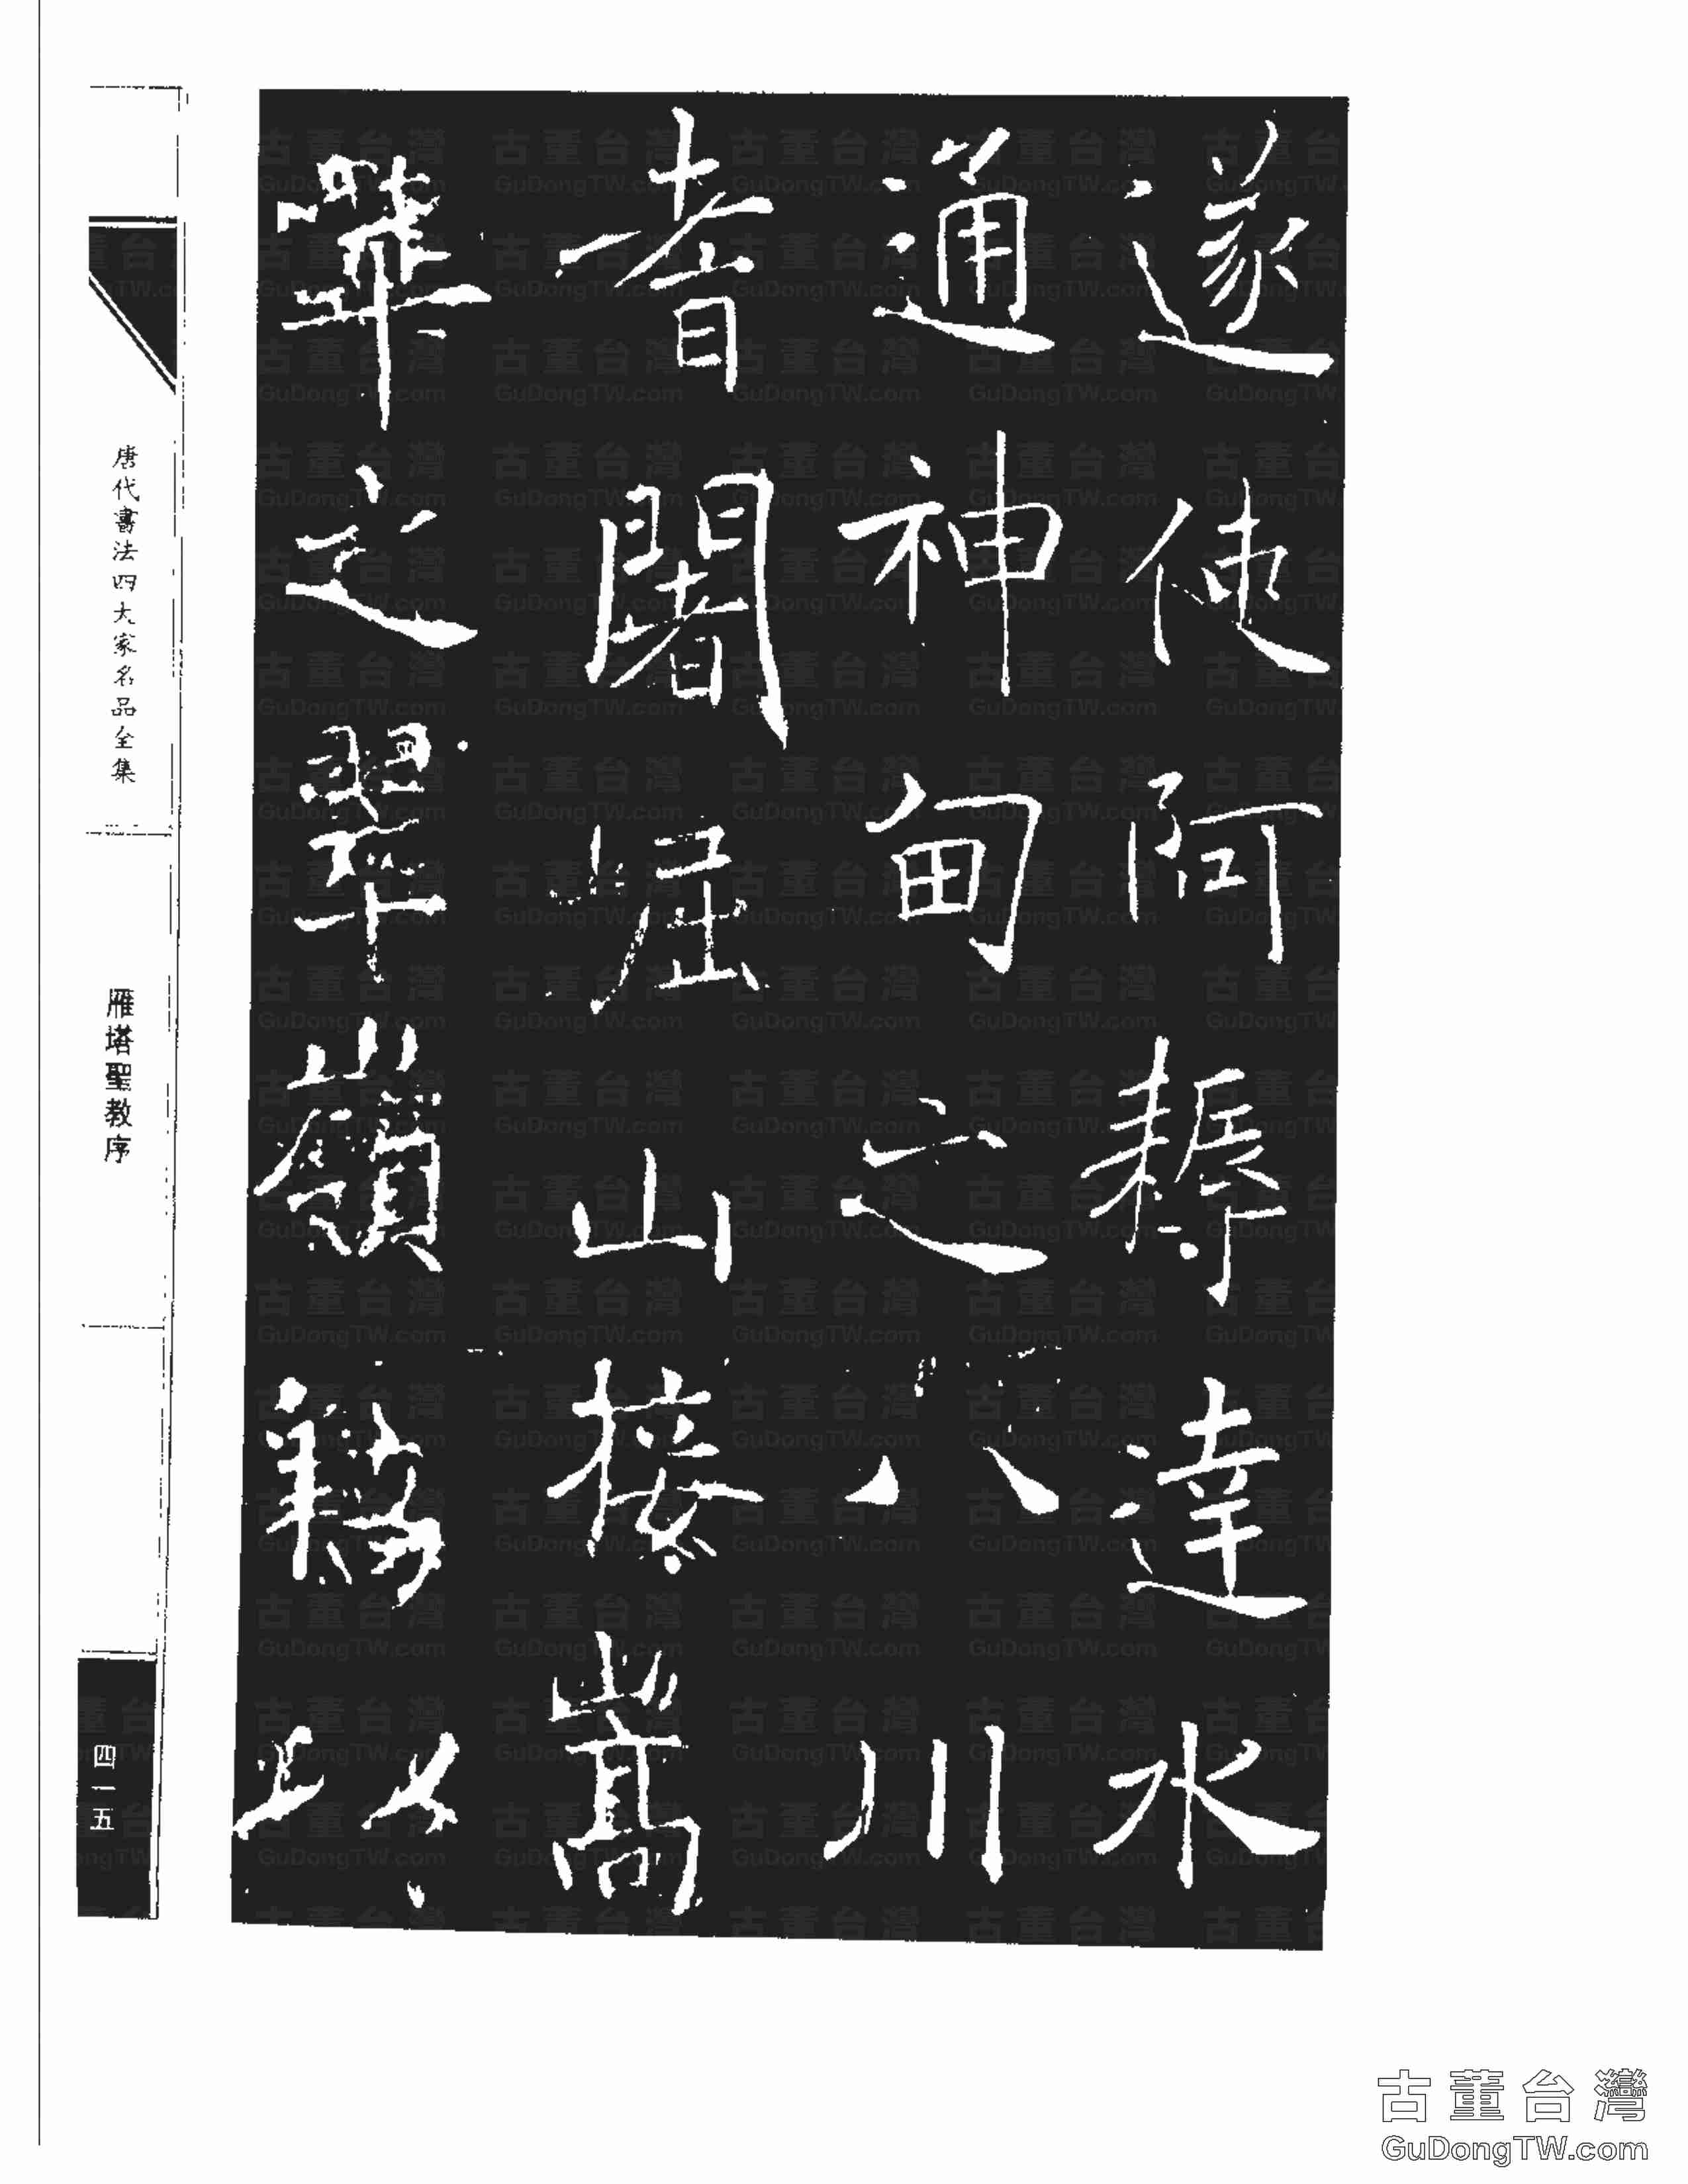 遂使阿耨達水
通神甸之八川
耆闍崛山接嵩
華之翠嶺
唐代書法四大家名品全集
雁塔聖教序
四一五
古董台灣
GuDongTW.com